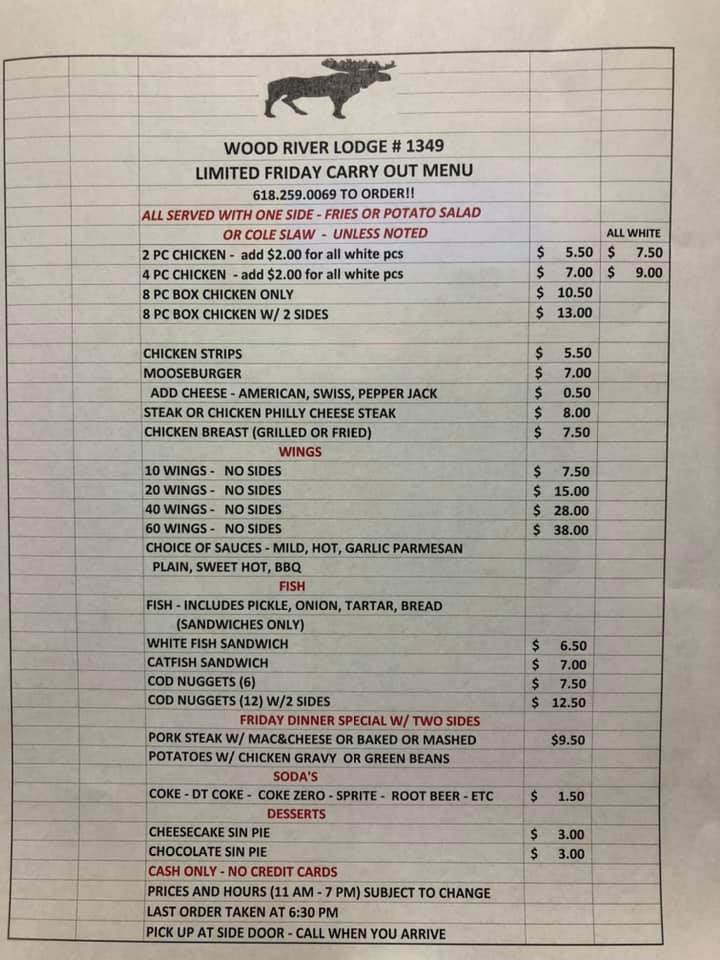 WOOD RIVER LODGE # 1349
LIMITED FRIDAY CARRY OUT MENU
618.259.0069 TO ORDER!!
ALL SERVED WITH ONE SIDE - FRIES OR POTATO SALAD
OR COLE SLAW - UNLESS NOTED ALL WHITE
2 PC CHICKEN - add $2.00 for all white pcs $ 5.50 $ 7.50
4 PC CHICKEN - add $2.00 for all white pcs $ 7.00 $ 9.00
8 PC BOX CHICKEN ONLY $ 10.50
8 PC BOX CHICKEN W/ 2 SIDES $ 13.00
CHICKEN STRIPS $ 5.50
MOOSEBURGER $ 7.00
ADD CHEESE - AMERICAN, SWISS, PEPPER JACK $ 0.50
STEAK OR CHICKEN PHILLY CHEESE STEAK $ 8.00
CHICKEN BREAST (GRILLED OR FRIED) $ 7.50
WINGS
10 WINGS - NO SIDES $ 7.50
20 WINGS - NO SIDES $ 15.00
40 WINGS - NO SIDES $ 28.00
60 WINGS - NO SIDES $ 38.00
CHOICE OF SAUCES - MILD, HOT, GARLIC PARMESAN
PLAIN, SWEET HOT, BBQ
FISH
FISH - INCLUDES PICKLE, ONION, TARTAR, BREAD
(SANDWICHES ONLY)
WHITE FISH SANDWICH $ 6.50
CATFISH SANDWICH $ 7.00
COD NUGGETS (6) $ 7.50
COD NUGGETS (12) W/2 SIDES $ 12.50
FRIDAY DINNER SPECIAL W/ TWO SIDES
PORK STEAK W/ MAC&CHEESE OR BAKED OR MASHED $9.50
POTATOES W/ CHICKEN GRAVY OR GREEN BEANS
SODA'S
COKE - DT COKE - COKE ZERO - SPRITE - ROOT BEER - ETC $ 1.50
DESSERTS
CHEESECAKE SIN PIE $ 3.00
CHOCOLATE SIN PIE $ 3.00
CASH ONLY - NO CREDIT CARDS
PRICES AND HOURS (11 AM - 7 PM) SUBJECT TO CHANGE
LAST ORDER TAKEN AT 6:30 PM
PICK UP AT SIDE DOOR - CALL WHEN YOU ARRIVE